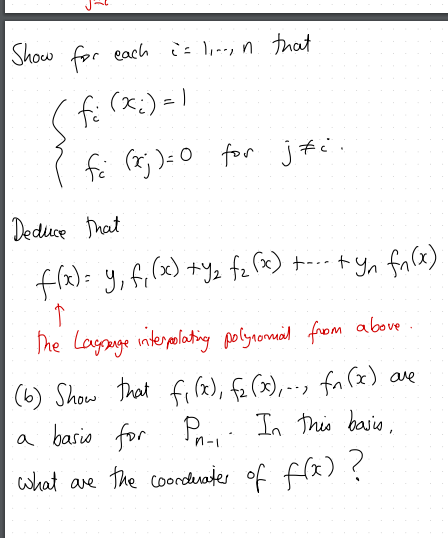 Show for each i = 1, .., n that
f_i (x_i) = 1
f_i (x_j) = 0 for j ≠ i.
Deduce that
f(x) = y_1 f_1(x) + y_2 f_2(x) + --- + y_n f_n(x)
↑
The Lagrange interpolating polynomial from above.
(b) Show that f_1(x), f_2(x), .., f_n(x) are
a basis for P_{n-1}. In this basis,
what are the coordinates of f(x)?